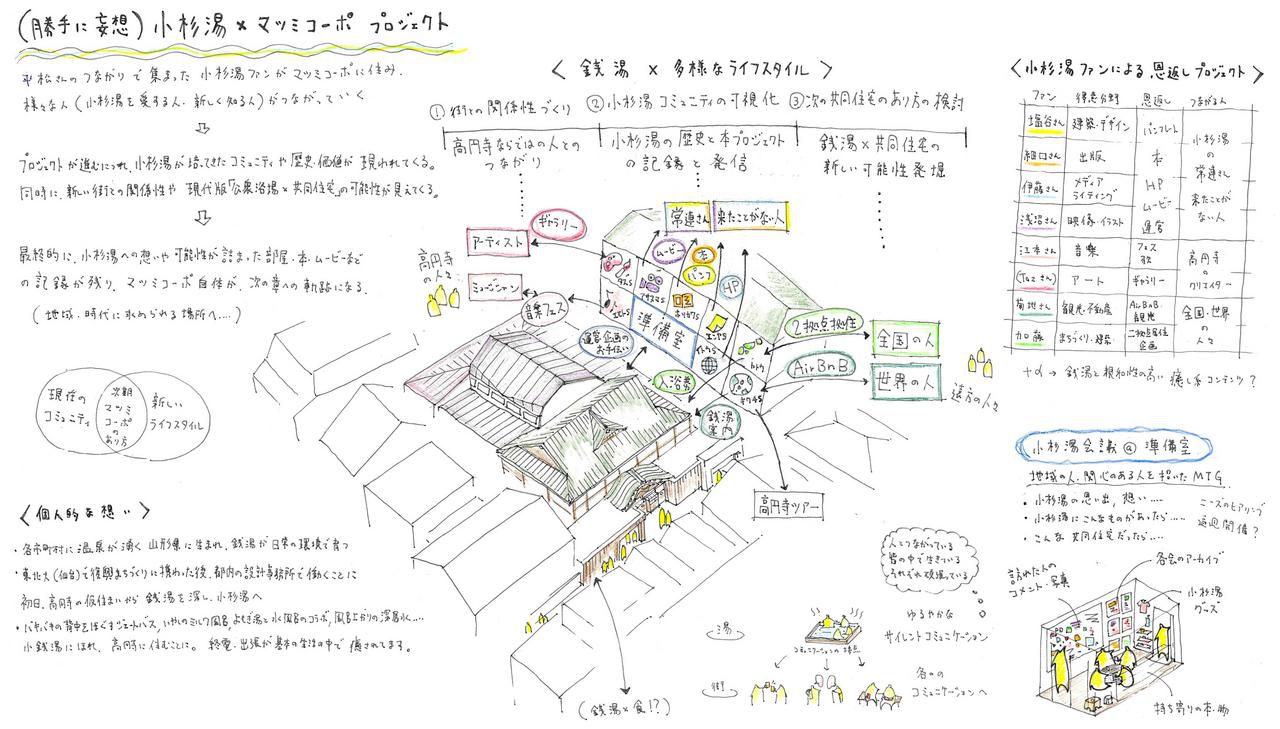 (勝手に妄想) 小杉湯×マツミコーポ プロジェクト
平松さんのつながりで集まった小杉湯ファンがマツミコーポに住み、
様々な人(小杉湯を愛する人、新しく知る人)がつながっていく
プロジェクトが進むにつれ、小杉湯が培てきたコミュニティや歴史・価値が現われてくる。
同時に、新しい街との関係性や現代版「公衆浴場×共同住宅」の可能性が見えてくる。
最終的に、小杉湯への想いや可能性が詰まった部屋・本・ムービーなど
の記録が残り、マツミコーポ自体が、次の章への軌跡になる。
(地域・時代に求められる場所へ....)
現在の
コミュニティ
次期
マツミ
コーポ
の
あり方
新しい
ライフスタイル
〈個人的な想い〉
・各市町村に温泉が湧く山形県に生まれ、銭湯が日常の環境で育つ
・東北大(仙台)で復興まちづくりに携わった後、都内の設計事務所で働くことに
初日、高円寺の仮住まいから銭湯を探し、小杉湯へ
・バキバキの背中をほぐすジェットバス、いやしのミルク風呂、
小銭湯にほれ、高円寺に住むことに。終電・出張が基本の生活の中で癒されてます。
〈銭湯×多様なライフスタイル〉
①街との関係性づくり ②小杉湯コミュニティの可視化 ③次の共同住宅のあり方の検討
高円寺ならではの人との
つながり
小杉湯の歴史と本プロジェクト
の記録と発信
銭湯×共同住宅の
新しい可能性発掘
ギャラリー
アーティスト
高円寺
の
人々
ミュージシャン
音楽フェス
常連さん
来たことがない人
ムービー
本
パンフ
HP
準備室
運営・企画の
お手伝い
入浴券
2拠点居住
AirBnB
全国の人
世界の人
遠方の人々
銭湯
案内
高円寺ツアー
(銭湯×食!?)
人とつながっている
皆の中で生きている
それぞれ頑張っている
湯
ゆるやかな
サイレントコミュニケーション
コミュニケーションの接点
各々の
コミュニケーションへ
〈小杉湯ファンによる恩返しプロジェクト〉
ファン 得意分野 恩返し つながる人
塩谷さん 建築・デザイン パンフレット
細口さん 出版 本
伊藤さん メディア ライティング HP
浅沼さん 映像・イラスト ムービー 運営
江本さん 音楽 フェス 歌
アート ギャラリー
菊地さん 観光・不動産 AirBnB 観光
加藤 まちづくり・建築 二拠点居住 企画
小杉湯
の
常連さん
来たことが
ない人
高円寺
の
クリエイター
全国・世界
の
人々
+α → 銭湯と親和性の高い癒し系コンテンツ?
小杉湯会議@準備室
地域の人、関心のある人を招いたMTG
・小杉湯の思い出、想い....
・小杉湯にこんなものがあったら.....
・こんな共同住宅だったら.....
ニーズのヒアリング
毎週開催?
各会のアーカイブ
訪れた人の
コメント・写真
小杉湯
グッズ
持ち寄りの本・物